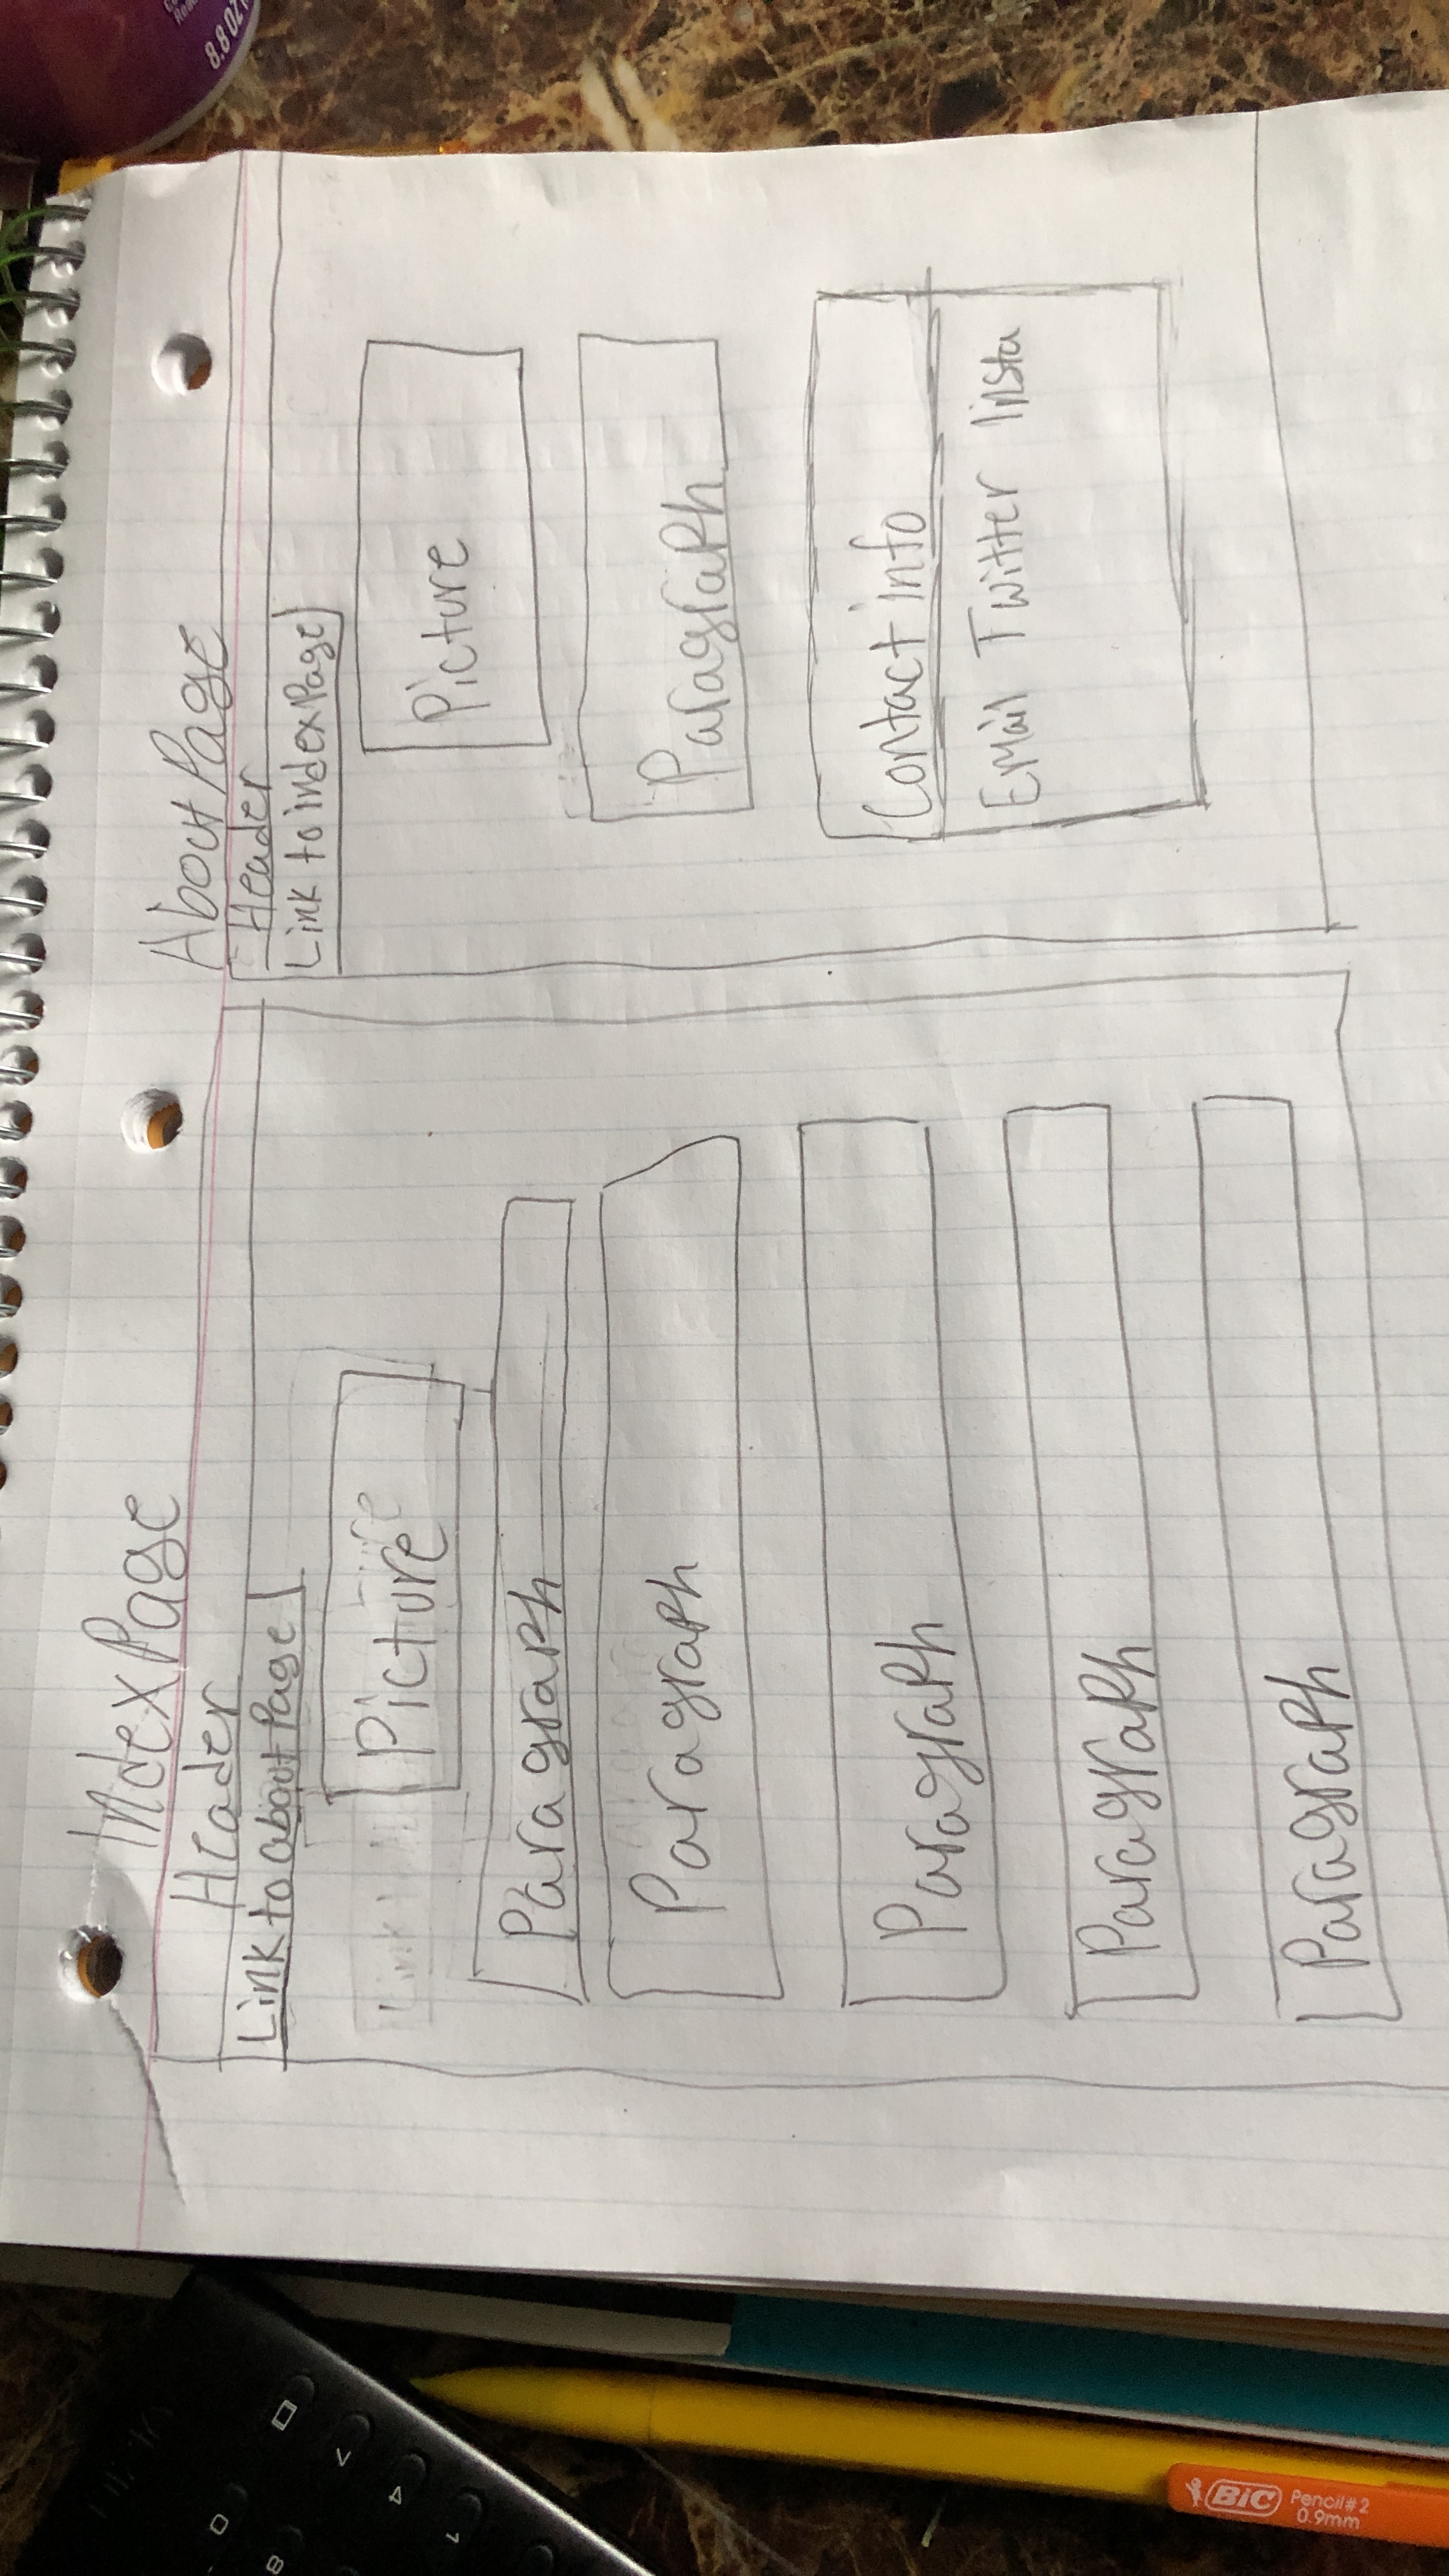 Index Page
Header
Link to about Page
Picture
Paragraph
Paragraph
Paragraph
Paragraph
Paragraph
About Page
Header
Link to index Page
Picture
Paragraph
Contact info
Email Twitter Insta
8.8 OZ
BIC
Pencil #2
0.9mm
7
4
1
0
8